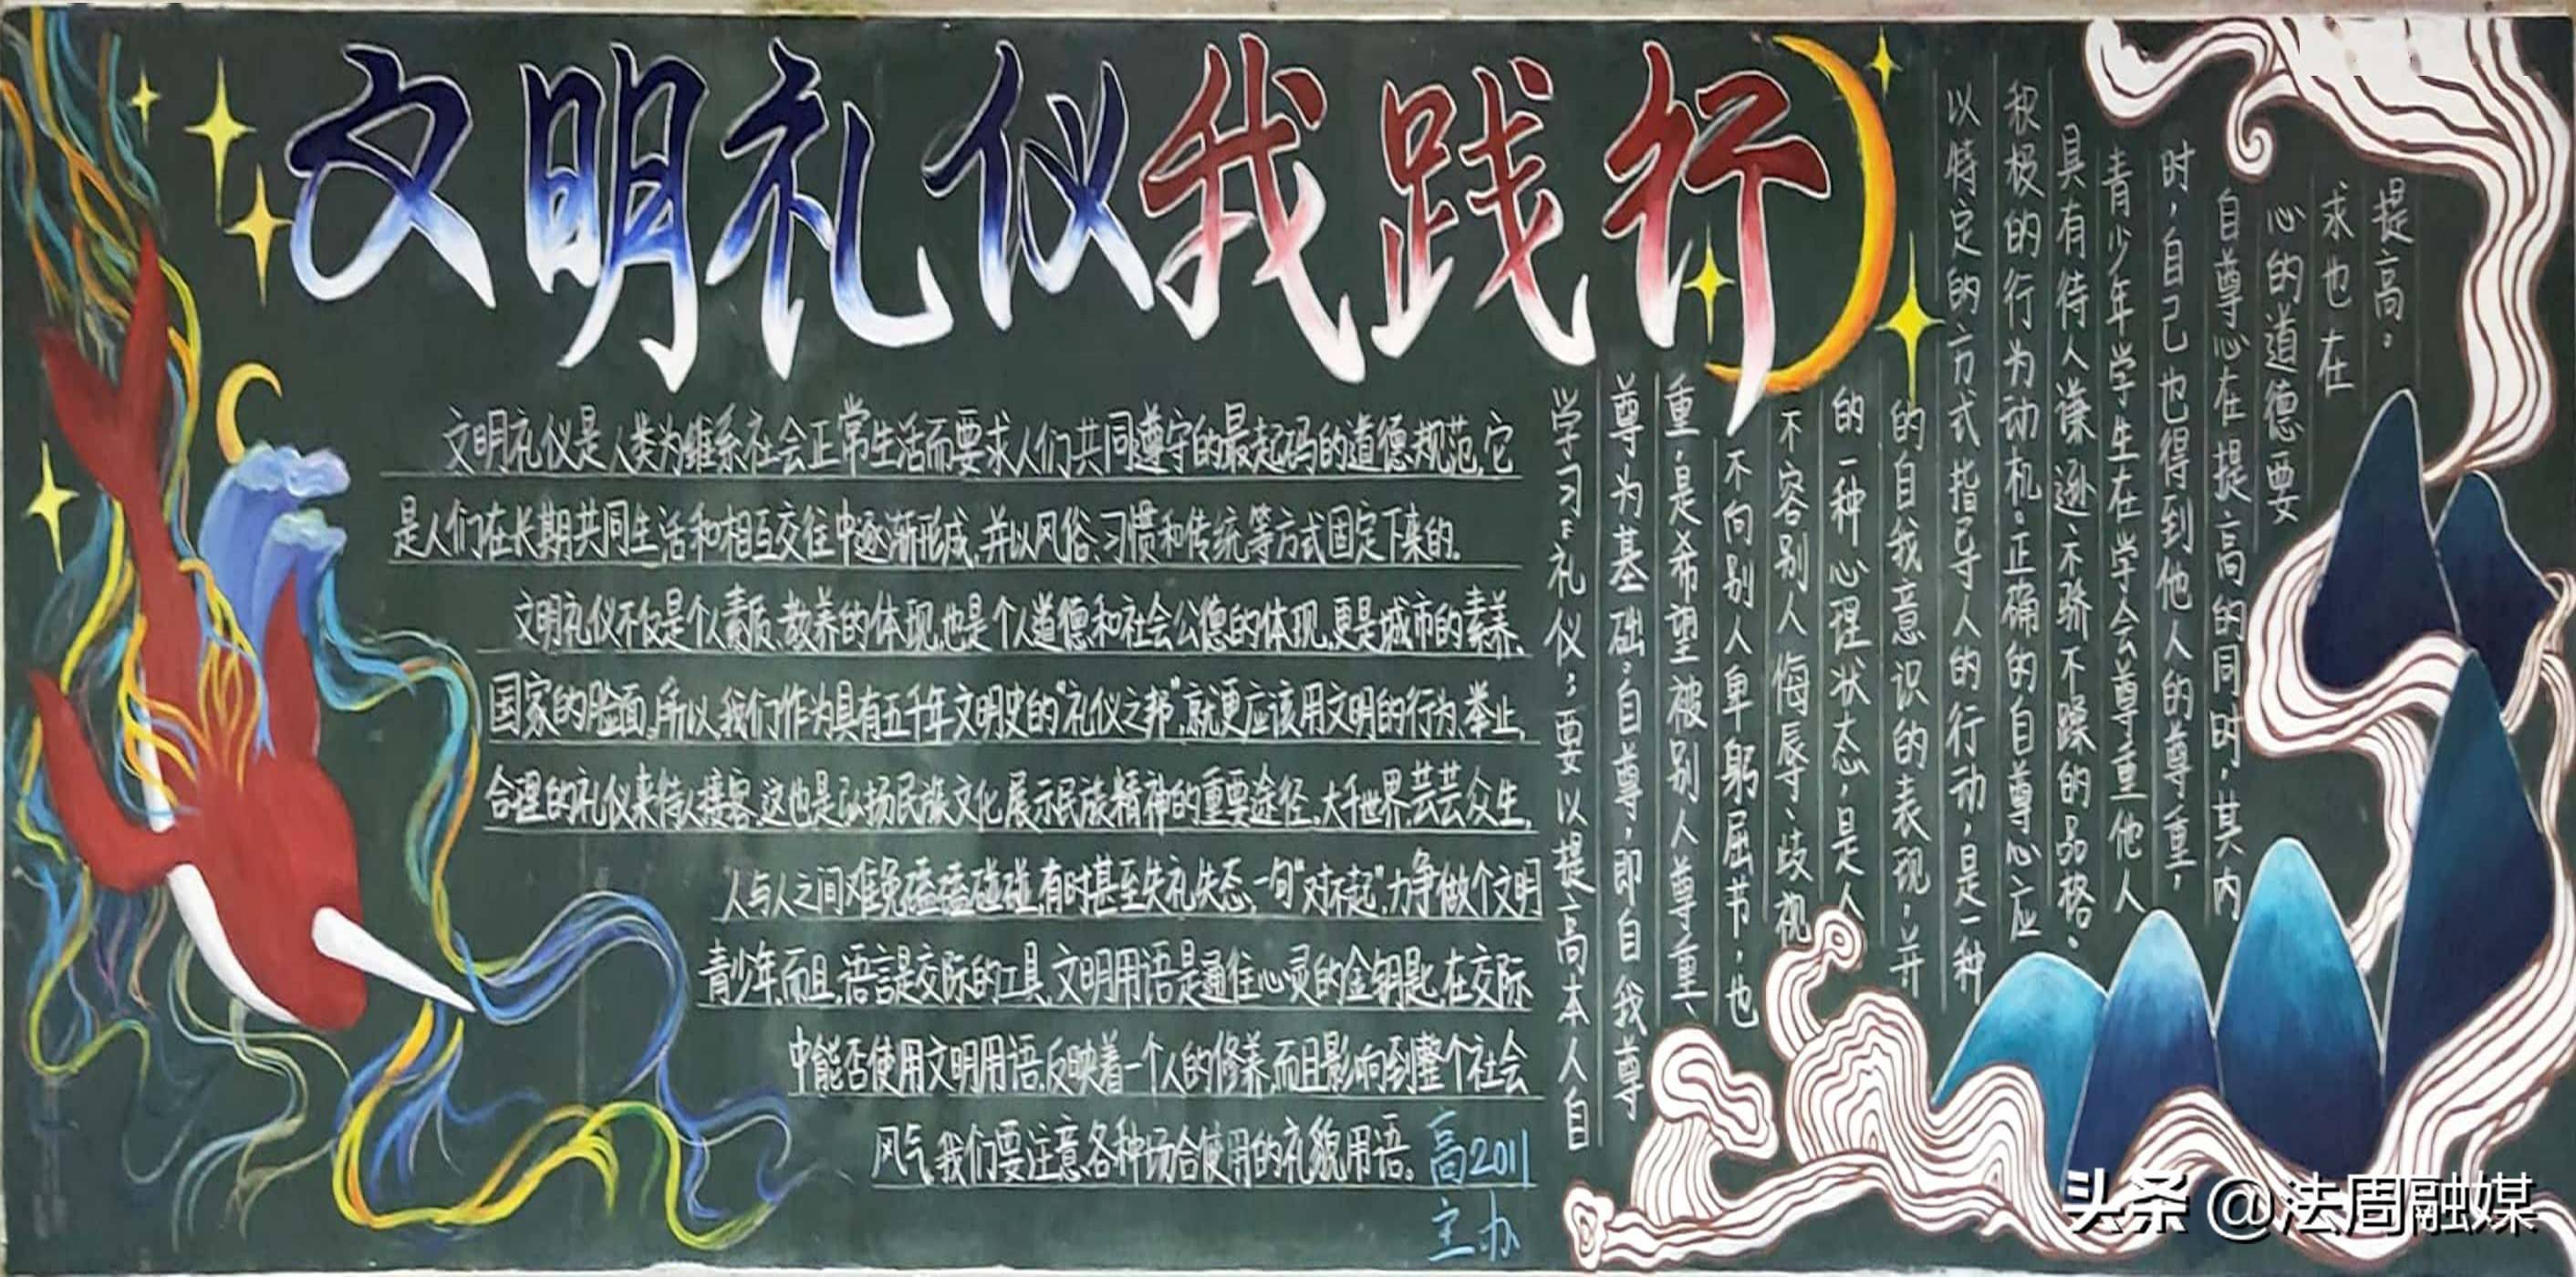 文明礼仪我践行
文明礼仪是人类为维系社会正常生活而要求人们共同遵守的最起码的道德规范,它
是人们在长期共同生活和相互交往中逐渐形成,并以风俗、习惯和传统等方式固定下来的.
文明礼仪不仅是个人素质、教养的体现,也是个人道德和社会公德的体现,更是城市的素养、
国家的脸面,所以,我们作为具有五千年文明史的"礼仪之邦",就更应该用文明的行为、举止,
合理的礼仪来待人接客.这也是弘扬民族文化展示民族精神的重要途径.大千世界,芸芸众生,
人与人之间难免磕磕碰碰,有时甚至失礼失态,一句"对不起",力争做个文明
青少年,而且,语言是交际的工具,文明用语是通往心灵的金钥匙,在交际
中能否使用文明用语,反映着一个人的修养,而且影响到整个社会
风气,我们要注意各种场合使用的礼貌用语。
高2011
主办
学习:礼仪;要以提高本人自
尊为基础。自尊,即自我尊
重,是希望被别人尊重、
不向别人卑躬屈节;也
不容别人侮辱、歧视
的一种心理状态,是人
的自我意识的表现,并
以特定的方式指导人的行动,是一种
积极的行为动机。正确的自尊心应
具有待人谦逊、不骄不躁的品格。
青少年学生在学会尊重他人
时,自己也得到他人的尊重,
自尊心在提高的同时,其内
心的道德要
求也在
提高。
头条 @法周融媒